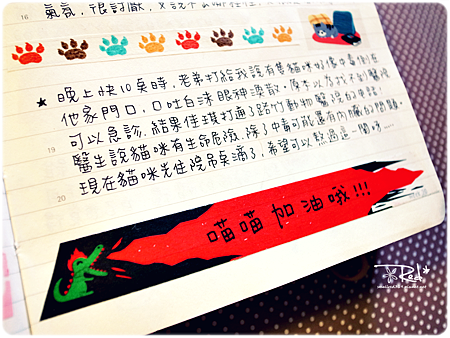 16
氣氛，很討厭，又說不
★ 晚上快10奌時，老弟打給我說有隻貓咪好像中毒倒在
他家門口，口吐白沫眼神渙散，原本以為找不到醫院
可以急診，結果佳琪打通了路竹動物醫院的電話！
19
醫生說貓咪有生命危險，除了中毒可能還有內臟的問題，
現在貓咪先住院吊奌滴了，希望可以熬過這一關呀
20
喵喵加油哦!!!
Red*